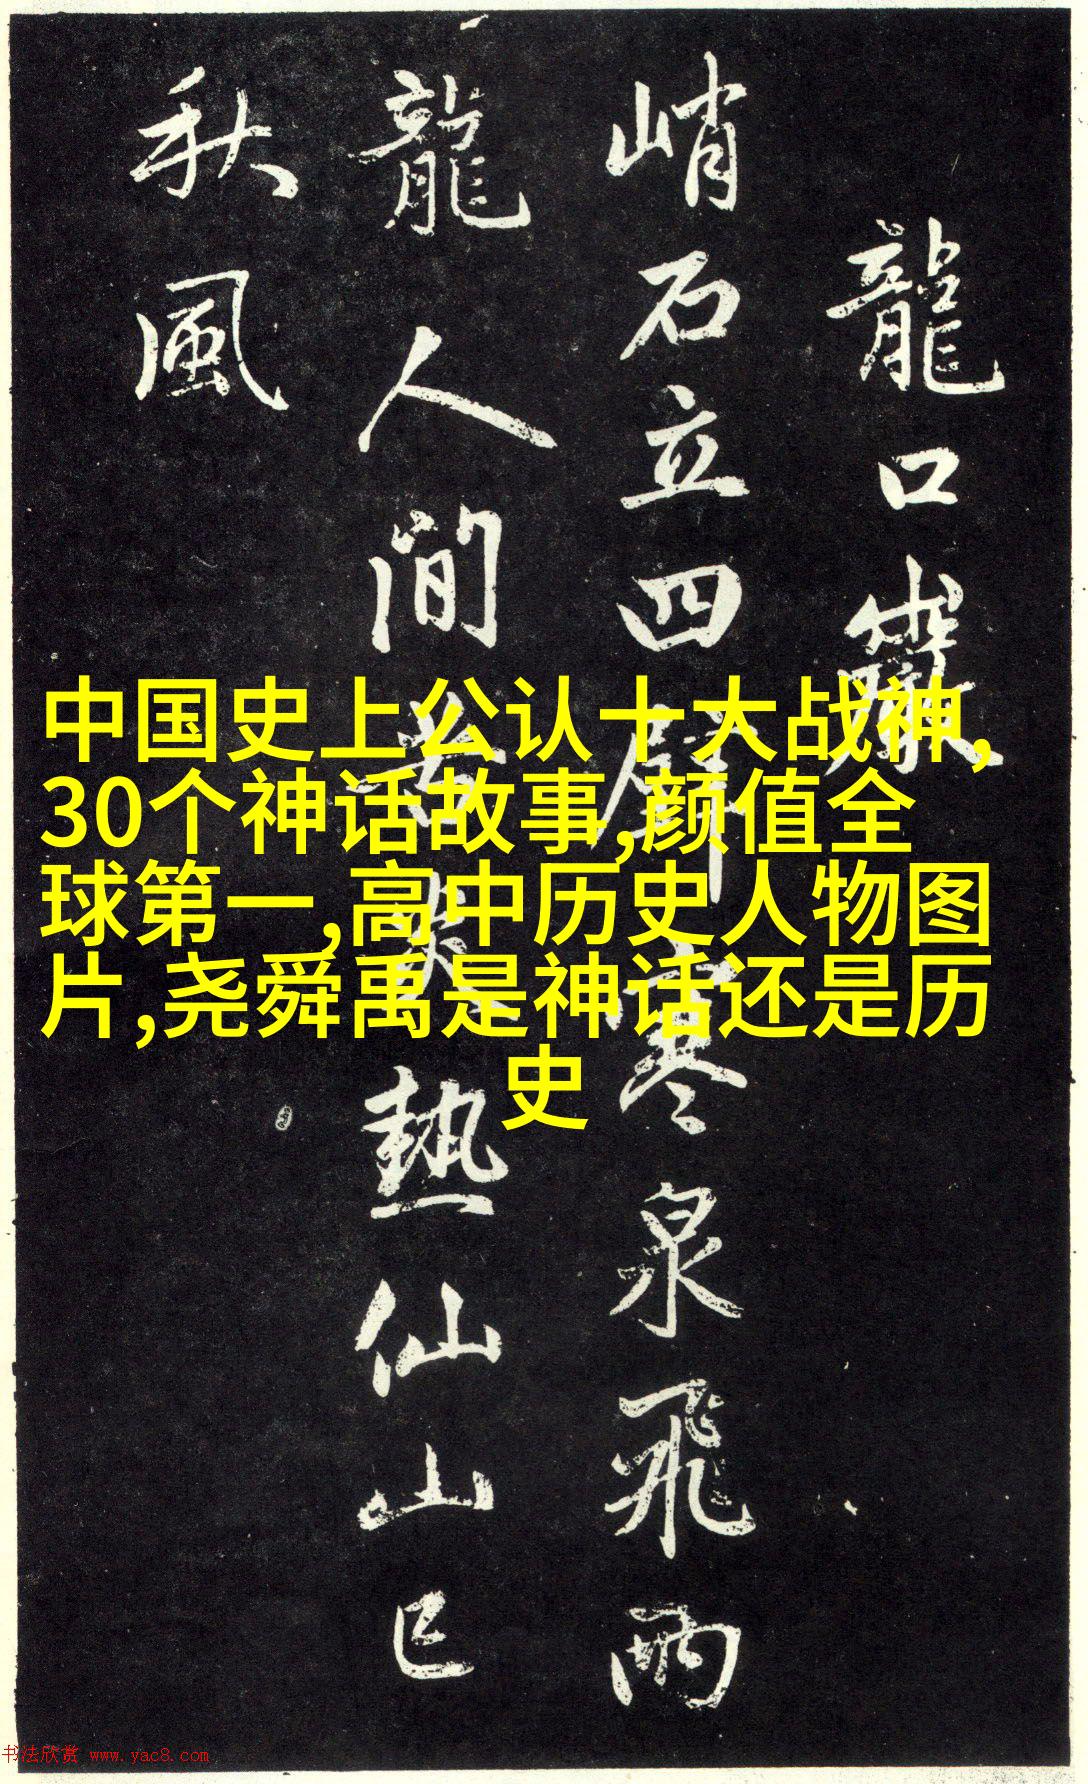 龍口巖
峭石立四壁寒泉飛兩
龍人間苦炎熱仙山已
秋風
中国史上公认十大战神,
30个神话故事,颜值全
球第一,高中历史人物图
片,尧舜禹是神话还是历
史
书法欣赏 www.yac8.com